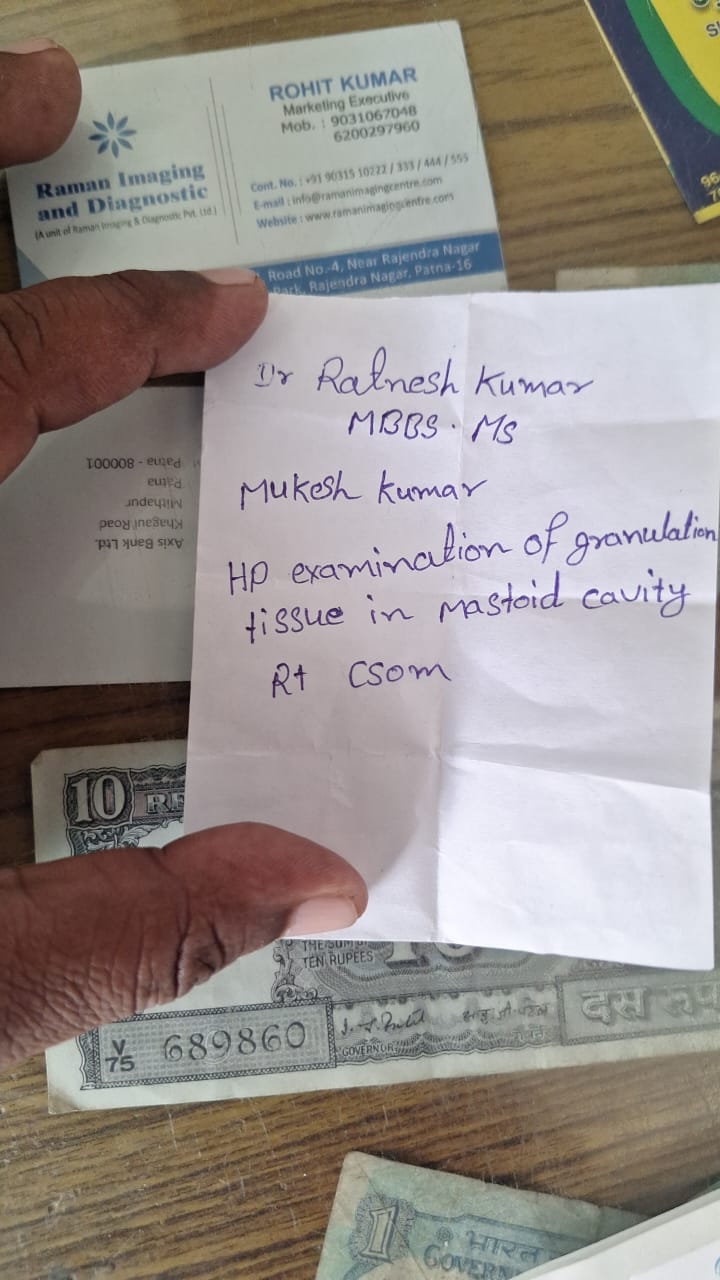 ROHIT KUMAR
Marketing Executive
Mob. : 9031067048
6200297960
Raman Imaging
and Diagnostic
(A unit of Raman Imaging & Diagnostic Pvt. Ltd.)
Cont. No. : +91 90315 10222 / 333 / 444 / 555
E-mail : info@ramanimagingcentre.com
Website : www.ramanimagingcentre.com
Road No.-4, Near Rajendra Nagar
Park, Rajendra Nagar, Patna-16
Dr Ratnesh Kumar
MBBS. MS
Mukesh Kumar
HP examination of granulation
tissue in Mastoid cavity
Rt CSOM
Axis Bank Ltd.
Khagaul Road
Mithapur
Patna
Patna - 800001
10 RE
THE SUM OF
TEN RUPEES
V
75 689860
GOVERNOR
दस
1
भारत
GOVERN